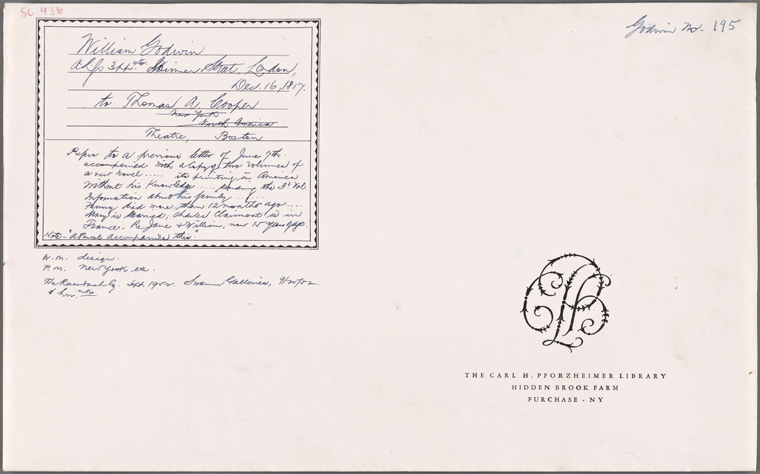 SC 936
Godwin No. 195
William Godwin
A.L.S 3pp 4to Skinner Street, London,
Dec. 16, 1817.
to Thomas A. Cooper
New York
North America
Theatre, Boston
Refers to a previous letter of June 7th.
accompanied with a copy of two volumes of
a new novel .... its printing in America
without his knowledge .... sending the 3d Vol.
Information about his family ....
Fanny died more than 12 months ago ....
Mary is Married, Charles Clairmont is in
France. Re Jane & William, now 15 years of age.
Note - "a Parcel accompanies this"
W.m. design.
P.m. New York etc.
Sept. 1902. Swann Galleries, 9/20/02.
THE CARL H. PFORZHEIMER LIBRARY
HIDDEN BROOK FARM
PURCHASE · NY